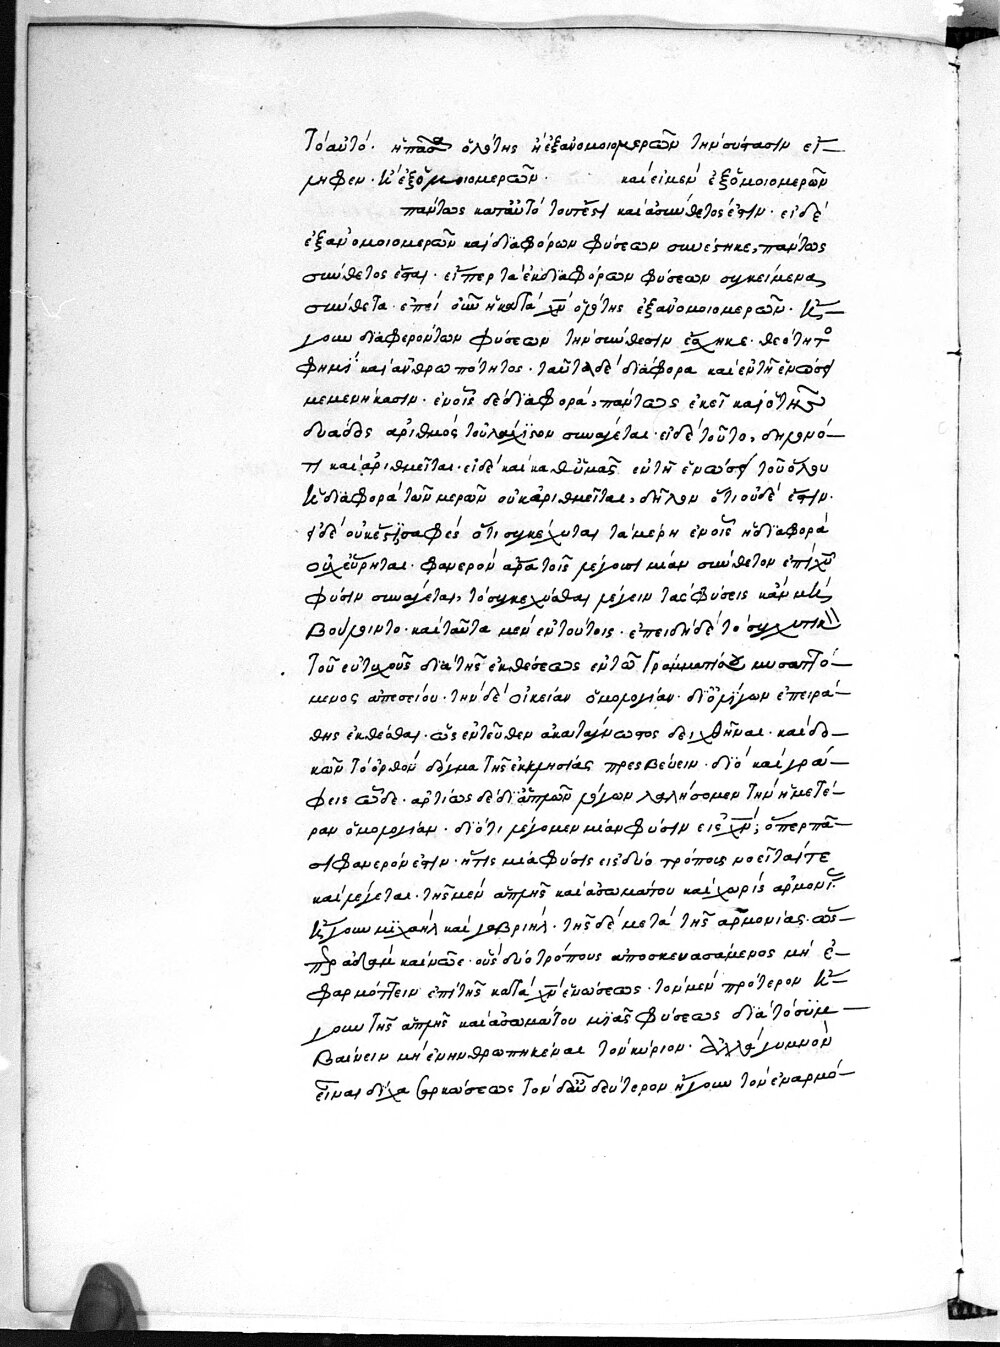 τὸ αὐτό. ἢ πᾶσα ὁλότης ἢ ἐξ ἀνομοιομερῶν τὴν σύστασιν εἴ-
ληφεν. ἢ ἐξ ὁμοιομερῶν. καὶ εἰ μὲν ἐξ ὁμοιομερῶν
πάντως κατ' αὐτό τουτέστι καὶ ἀσύνθετος ἐστιν. εἰ δὲ
ἐξ ἀνομοιομερῶν καὶ διαφόρων φύσεων συνέστηκε, πάντως
σύνθετος ἔσται. εἴπερ τὰ ἐκ διαφόρων φύσεων συγκείμενα
σύνθετα. ἐπεὶ οὖν ἡ κατὰ χν ὁλότης ἐξ ἀνομοιομερῶν. ἤ-
γουν διαφερόντων φύσεων τὴν σύνθεσιν ἔσχηκε. θεότητο
φημὶ καὶ ἀνθρωπότητος. ταῦτα δὲ διάφορα καὶ ἐν τῇ ἑνώσει
μεμενήκασιν. ἐν οἷς δὲ διαφορά, πάντως ἐκεῖ καὶ ὁ τῆς
δυάδος ἀριθμὸς τοὐλάχιστον συνάγεται. εἰ δὲ τοῦτο, δηλονό-
τι καὶ ἀριθμεῖται. εἰ δὲ καὶ καθ' ὑμᾶς ἐν τῇ ἑνώσει τοῦ ὅλου
ἡ διαφορὰ τῶν μερῶν οὐκ ἀριθμεῖται, δῆλον ὅτι οὐδὲ ἔστιν.
εἰ δὲ οὐκ ἔστι, σαφὲς ὅτι συγκέχυται τὰ μέρη ἐν οἷς ἡ διαφορὰ
οὐχ εὕρηται. φανερὸν ἄρα τοῖς λέγουσι μίαν σύνθετον ἐπὶ χυ
φύσιν συνάγεται, τὸ συγκεχύσθαι λέγειν τὰς φύσεις κἂν μὴ
βούλοιντο. καὶ ταῦτα μὲν ἐν τούτοις. ἐπειδὴ δὲ τὸ συγχυτικὸν
τοῦ εὐτυχοῦς διὰ τῆς ἐκθέσεως ἐν τῷ γραμματίῳ μυσαττό-
μενος ἀπεσείου. τὴν δὲ οἰκείαν ὁμολογίαν. δι' ὀλίγων ἐπειρά-
θης ἐκθέσθαι. ὡς ἐντεῦθεν ἀκατάγνωτος δειχθῆναι. καὶ δο-
κῶν τὸ ὀρθὸν δόγμα τῆς ἐκκλησίας πρεσβεύειν. διὸ καὶ γρά-
φεις ὧδε. ἀρτίως δὲ δι' ἁπλῶν λόγων λαλήσομεν τὴν ἡμετέ-
ραν ὁμολογίαν. διότι λέγομεν μίαν φύσιν εἰς χν, ὅπερ πᾶ-
σι φανερόν ἐστιν. ἥτις μία φύσις εἰς δύο τρόπους νοεῖταί τε
καὶ λέγεται. τῆς μὲν ἁπλῆς καὶ ἀσωμάτου καὶ χωρὶς ἁρμονί
ἤγουν μιχαὴλ καὶ γαβριήλ. τῆς δὲ μετὰ τῆς ἁρμονίας. ὥσ-
περ ἀδὰμ καὶ νῶε. οὓς δύο τρόπους ἀποσκευασάμενος μὴ ἐ-
φαρμόττειν ἐπὶ τῆς κατὰ χν ἑνώσεως. τὸν μὲν πρότερον ἤ-
γουν τῆς ἁπλῆς καὶ ἀσωμάτου μιᾶς φύσεως διὰ τὸ συμ-
βαίνειν μὴ ἐνηνθρωπηκέναι τὸν κύριον. ἀλλὰ γυμνὸν
εἶναι δίχα σαρκώσεως τὸν δ' αὖ δεύτερον ἤγουν τὸν ἐναρμό-